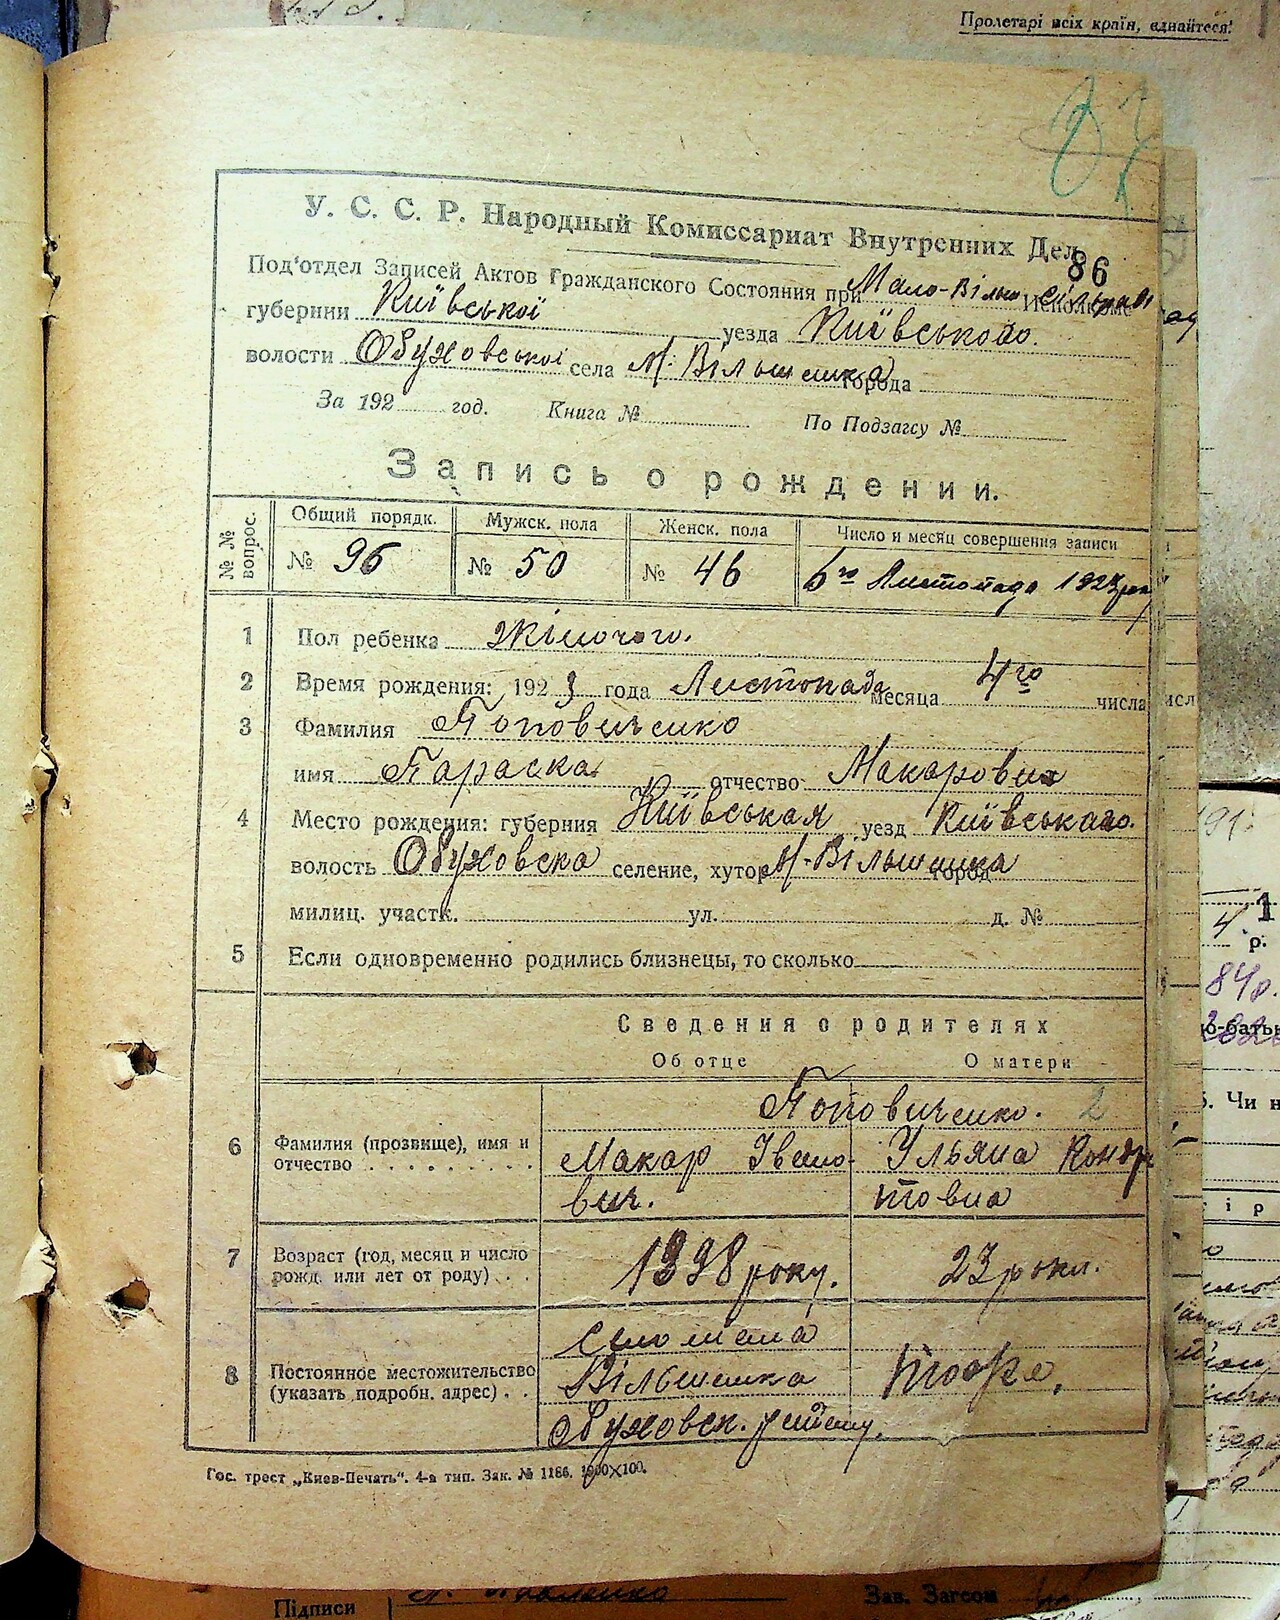 Пролетарі всіх країн, єднайтеся!
86
У. С. С. Р. Народный Комиссариат Внутренних Дел.
Под'отдел Записей Актов Гражданского Состояния при Мало-Вільш Исполкоме
губернии Київської уезда Київського.
волости Обуховської села М. Вільшанка города
За 192 год. Книга № По Подзагсу №
Запись о рождении.
№ № вопрос.
Общий порядк. Мужск. пола Женск. пола Число и месяц совершения записи
№ 96 № 50 № 46 6го Листопада 1923 року
1 Пол ребенка жіночого.
2 Время рождения: 1923 года Листопада месяца 4го числа
3 Фамилия Поповиченко
имя Параска отчество Макарович
4 Место рождения: губерния Київськая уезд Київського.
волость Обуховска селение, хутор М-Вільшанка город
милиц. участк. ул. д. №
5 Если одновременно родились близнецы, то сколько
Сведения о родителях
Об отце О матери
Поповиченко. 2
6 Фамилия (прозвище), имя и отчество Макар Івано- Ульяна Кондр
вич. товна
7 Возраст (год, месяц и число рожд. или лет от роду) 1898 року. 23 роки.
село мала
8 Постоянное местожительство (указать подробн. адрес) Вільшанка
Обуховск. району.
Гос. трест „Киев-Печать“. 4-я тип. Зак. № 1186. 1900×100.
Підписи
Зав. Загсом